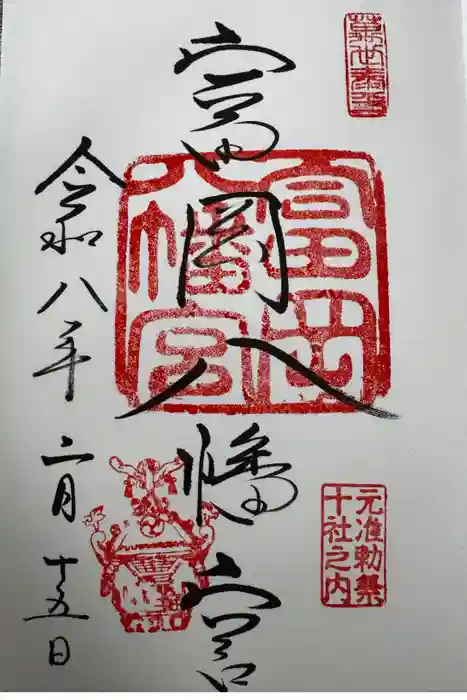 元准勅祭
十社之内
富岡八幡宮
富岡
八幡宮
令和八年二月十五日